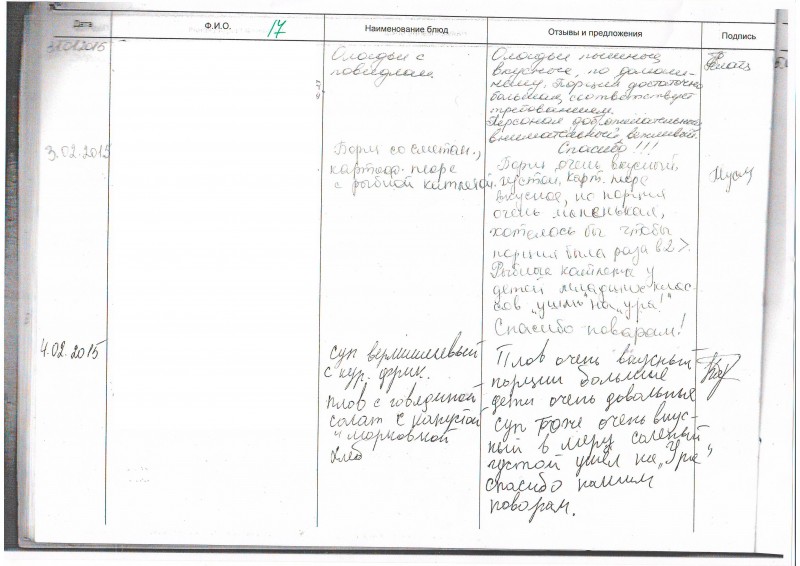 Дата Ф.И.О. 17 Наименование блюд Отзывы и предложения Подпись
Оладьи с
повидлом
Оладьи пышные,
вкусные, по домаш-
нему. Порция достаточно
большая, соответствует
требованиям.
Персонал доброжелательный
внимательный, вежливый.
Спасибо!!!
3.02.2015
Борщ со сметан.,
картоф. пюре
с рыбной котлетой.
Борщ очень вкусный,
густой, карт. пюре
вкусное, но порция
очень маленькая,
хотелось бы чтобы
порция была раза в 2 >.
Рыбные котлеты у
детей младших клас-
сов "ушли" на "ура!"
Спасибо поварам!
4.02.2015
суп вермишелевый
с кур. фрик.
плов с говядиной
салат с капустой
и морковкой
хлеб
Плов очень вкусный
порции большие
дети очень довольные
суп тоже очень вкус-
ный в меру соленый
густой ушёл на „Ура"
спасибо нашим
поварам.